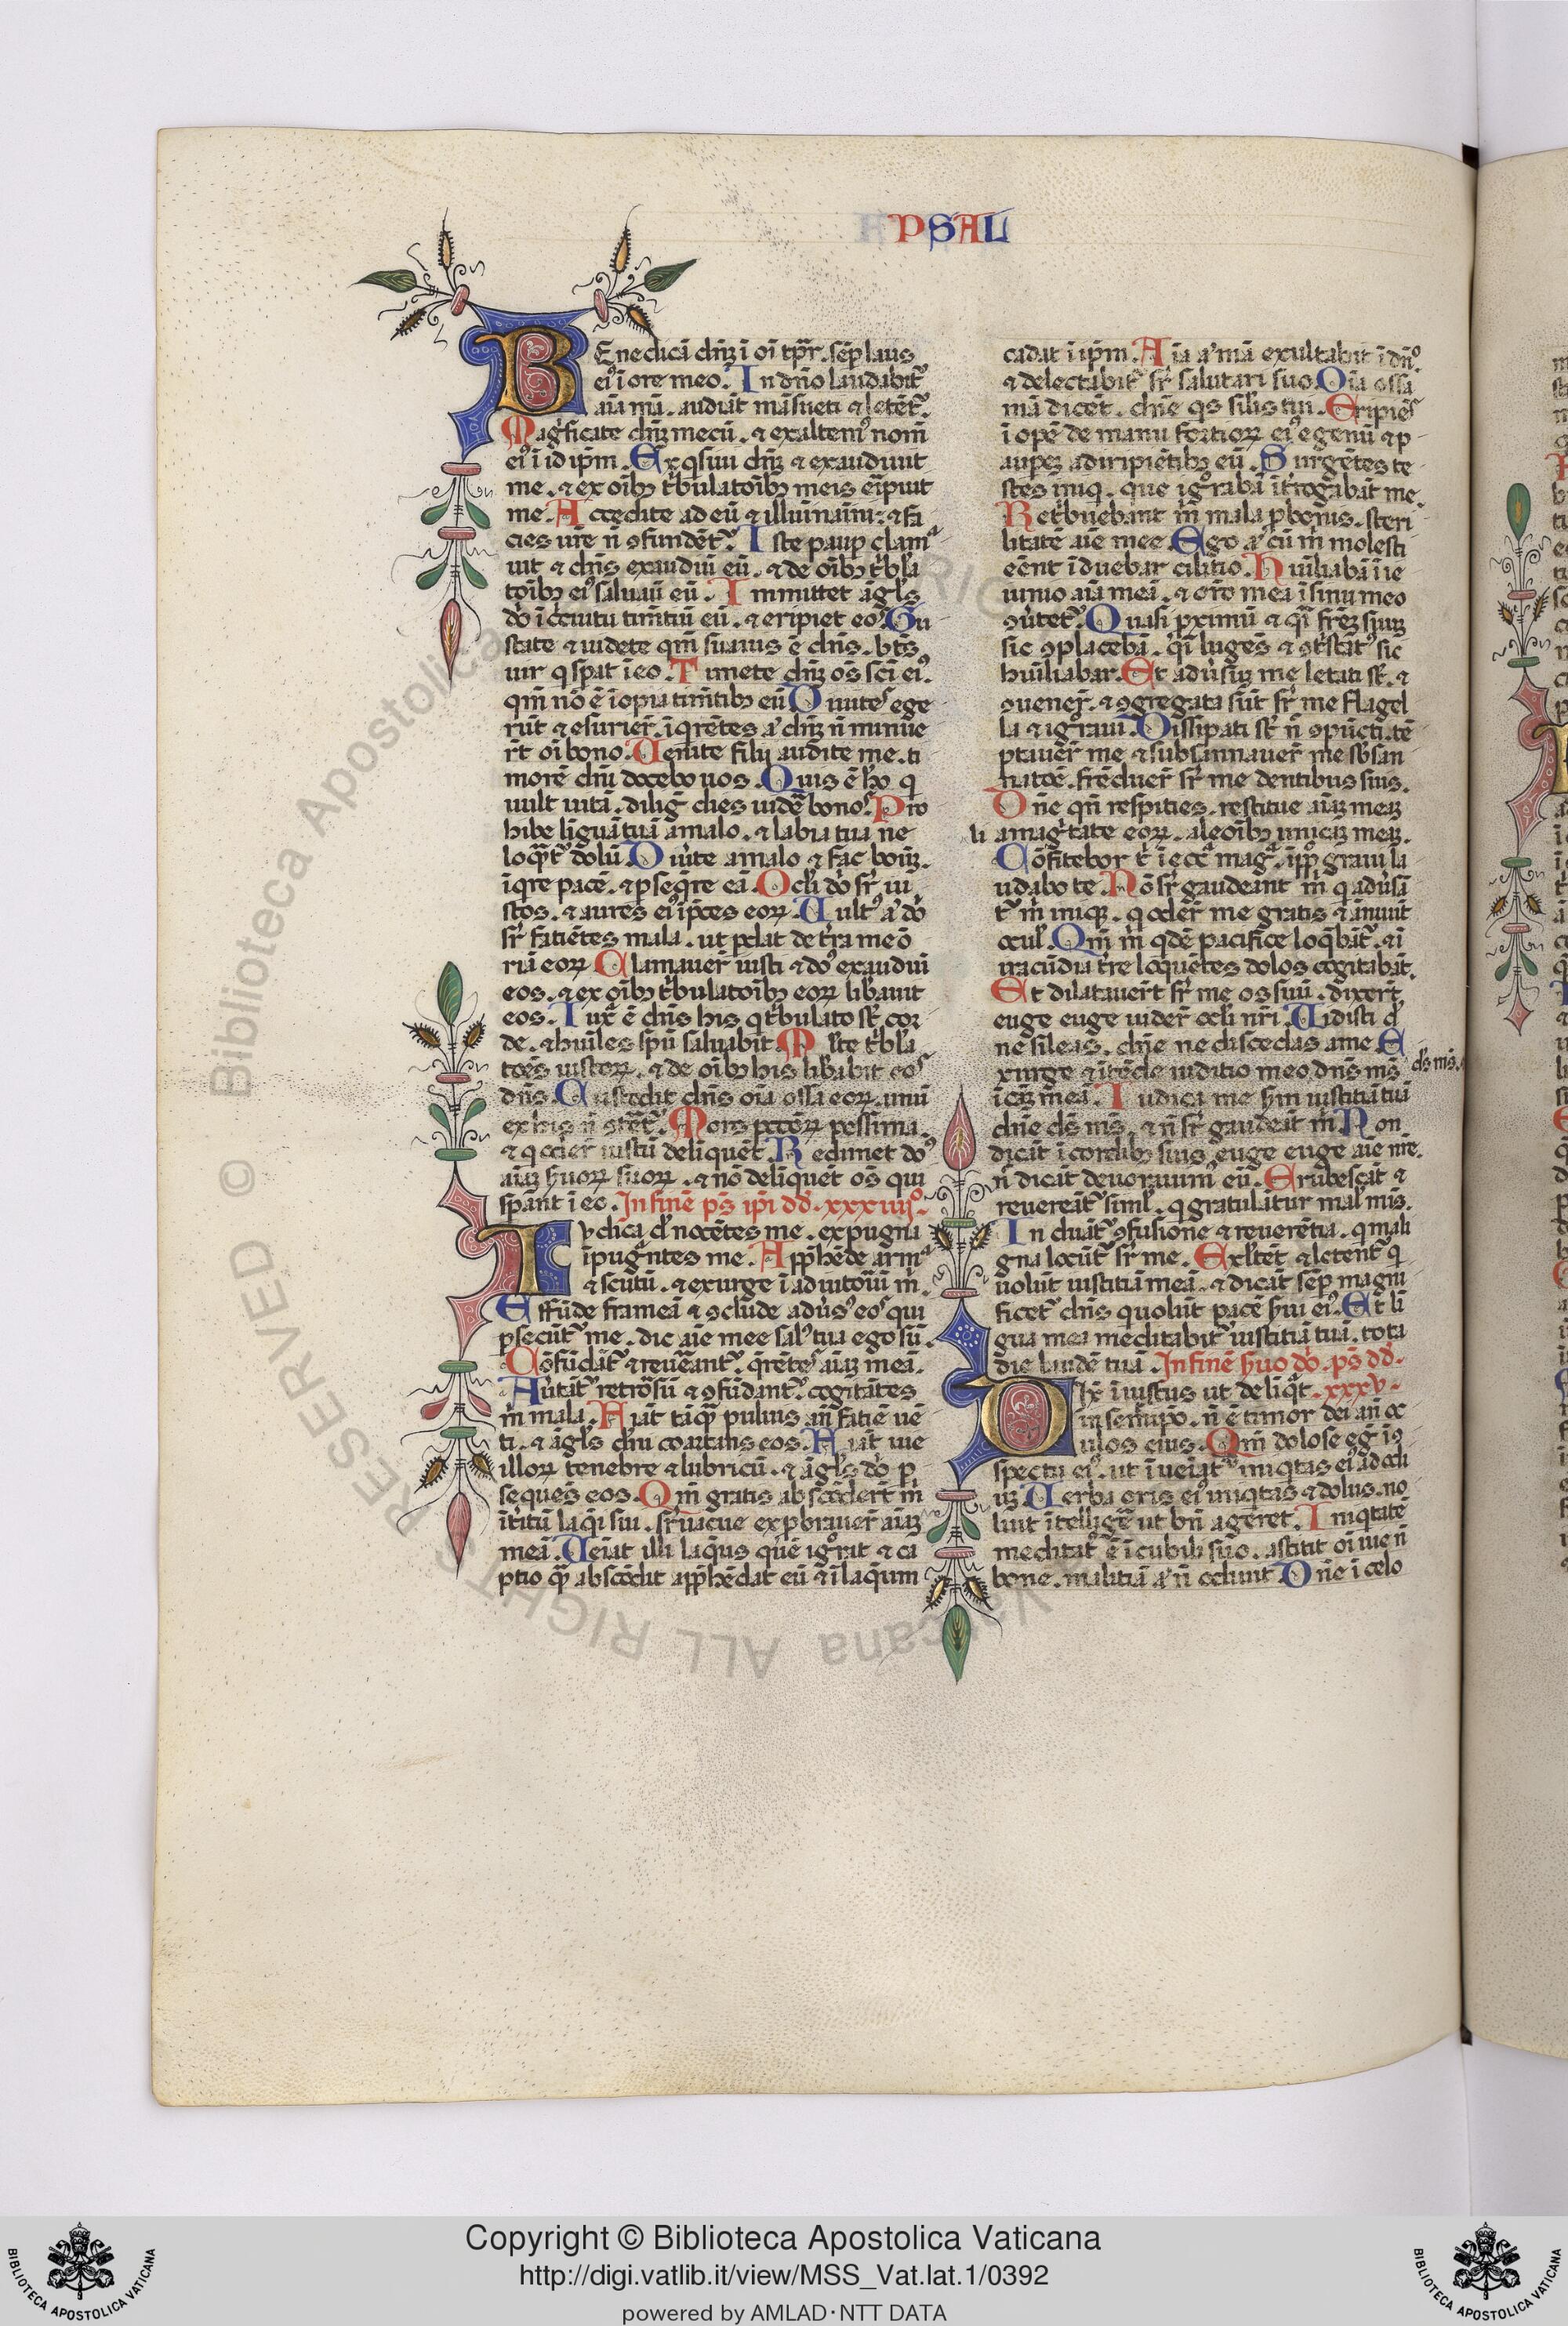 PSAL
Enedicā dn̄ꝫ ī oī tp̄r. sēp laus
ei⁹ ī ore meo. In dn̄o laudabit᷑
aīa mā. audiāt māsueti ⁊ letēt᷑.
Magficate dn̄ꝫ mecū. ⁊ exaltem⁹ nom̄
ei⁹ ī id ip̄m. Exqsiui dn̄ꝫ ⁊ exaudiuit
me. ⁊ ex oībꝫ tb̓ulatoībꝫ meis eīpuit
me. Accedite ad eū ⁊ illuīnaīni: ⁊ fa
cies ur̄e n̄ ꝯfundēt᷑. Iste paup clam
uit ⁊ dn̄s exaudiuī eū. ⁊ de oībꝫ tb̓la
toībꝫ ei⁹ saluauī eū. Immittet āgl̓s
do᷑ ī circuitu timētiū eū. ⁊ eripiet eos. Gu
state ⁊ uidete qm̄ suauis ē dn̄s. bt̄s
uir q spat ī eo. Timete dn̄ꝫ os̄ sc̄i ei⁹.
qm̄ nō ē īopia timētibꝫ eū Diuites ege
rūt ⁊ esurier̄. īqrētes a᷑ dn̄ꝫ n̄ minue
rt̄ oī bono. Uenite filij audite me. ti
morē dn̄i docebo uos. Quis ē hō q
uult uitā. diliḡ dies uidē bonos. Pro
hibe līguā tuā a malo. ⁊ labia tua ne
loqt̄᷑ dolū. Diūte a malo ⁊ fac bonū.
īqre pacē. ⁊ pseqre eā. Ocli do᷑ sr̄ iu
stos. ⁊ aures ei⁹ ī pces eoꝝ. Uult⁹ a᷑ do᷑
sr̄ fatiētes mala. ut pdat de tr̄a meō
riā eoꝝ Clamauer̄ iusti ⁊ do᷑ exaudiuī
eos. ⁊ ex oībꝫ tb̓ulatoībꝫ eoꝝ lib̄auit
eos. Iux̄ ē dn̄s his q tb̓ulato st̄ cor
de. ⁊ huīles spū saluabit. Mlte tb̓la
toēs iustoꝝ. ⁊ de oībꝫ his lib̄abit eos
dn̄s. Custodit dn̄s oīa ossa eoꝝ. unū
ex his n̄ ꝯtēt᷑. Mors pctōꝝ pessima.
⁊ q oder̄ iustū deliquēt. Redimet do᷑
aīaꝫ s̓uoꝝ suoꝝ. ⁊ nō deliquēt os̄ qui
spānt ī eo. In finē ps̄ ip̄i dd̄. xxxiiij⁰.
Iudica d̄ nocētes me. expugna
īpugntes me. Apphēde arma
⁊ scutū. ⁊ exurge ī adiutoīuī m̄.
Effūde frameā ⁊ ꝯclude adūs⁹ eos qui
psecūt᷑ me. dic aīe mee sal⁹ tua ego sū.
Cōfūdāt᷑ ⁊ reuēant᷑. qrētes aīaꝫ meā.
Aūtāt᷑ retrōsū ⁊ ꝯfūdant᷑. cogitātes
m̄ mala. Fiāt tāqꝫ puluis an̄ fatiē uē
ti. ⁊ āgl̓s dn̄i coartans eos. Fiāt uie
illoꝝ tenebre ⁊ lubricū. ⁊ āgl̓s do᷑ p
sequēs eos. Qm̄ gratis abscōdert̄ m̄
ītitū laqi sui. sr̄uacue expbrauer̄ aīaꝫ
meā. Ueīat illi laqus quē igr̄at ⁊ ca
ptio quā abscōdit apphēdat eū ⁊ ī laquum
cadat ī ip̄m. Aīa a᷑ mā exultabit ī dn̄o
⁊ delectabit᷑ sr̄ salutari suo. Oīa ossa
mā dicēt. dn̄e qs silis tui. Eripiēs
ī opē de manu fortioꝝ ei⁹ egenū ⁊ p
aupeꝫ a diripiētibꝫ eū. Surgētes te
stes iniq. que igr̄abā īt̄rogabāt me.
Retb̓uebant m̄ mala p bonis. steri
litatē aīe mee. Ego a᷑ cū m̄ molesti
eēnt īduebar cilitio. Huīliabā ī ie
iunio aīā meā. ⁊ orō mea ī sinu meo
ꝯūtet᷑. Quasi pximū ⁊ qī frēꝫ nr̄uꝫ
sic ꝯplacebā. qī lugēs ⁊ ꝯtstāt᷑ sic
huīliabar. Et adūsuꝫ me letati st̄. ⁊
ꝯuener̄. ⁊ ꝯgregata sūt sr̄ me flagel
la ⁊ igr̄aui. Dissipati st̄ n̄ ꝯpūcti. tē
ptauer̄ me ⁊ subsannauer̄ me sb̄san
natōē. frēduer̄ sr̄ me dentibus suis.
Dn̄e qn̄ respities. restitue aīaꝫ meaꝫ
a mag̓tate eoꝝ. a leoībꝫ unicaꝫ meaꝫ.
li
Cōfitebor t̄ ī ecc̄a mag̓. ī pplo graui la
udabo te. Nō sr̄gaudeant m̄ q adūsā
t᷑ m̄ iniqꝫ. q oder̄ me gratis ⁊ ānuūt
ocul̓. Qm̄ m̄ qdē pacifice loqbāt᷑. ⁊ ī
iracūdia tr̄e loquētes dolos cogitabāt.
Et dilatauert̄ sr̄ me os suū. dixert̄
euge euge uider̄ ocli nr̄i. Uidisti dn̄e
ne sileas. dn̄e ne discedas a me. E
xurge ⁊ ītēde iuditio meo. dn̄s m̄s
ds̄ m̄s.
ī cāꝫ meā. Iudica me sm̄ iustitiā tuā
dn̄e ds̄ m̄s. ⁊ n̄ sr̄gaudeāt m̄. Non
dicāt ī cordibꝫ suis euge euge aīe nr̄e.
n̄ dicāt deuorauim⁹ eū. Erubescāt ⁊
reuereāt᷑ siml̓. q gratulātur mal̓ m̄is.
Induāt᷑ ꝯfusione ⁊ reuerētia. q mali
gna locūt᷑ sr̄ me. Exl̓tēt ⁊ letent᷑ q
uolūt iustitiā meā. ⁊ dicāt sēp magni
ficet᷑ dn̄s quolūt pacē s̓ui ei⁹. Et lī
gua mea meditabit᷑ iustitiā tuā. tota
die laudē tuā. In finē s̓uo do᷑. ps̄ dd̄.
Dix̄ īiustus ut delīqt. xxxv.
in semipo. n̄ ē timor dei an̄ oc
ulos eius. Qm̄ dolose eg̓ ī ꝯ
spectu ei⁹. ut īueīat᷑ iniqtas ei⁹ ad odi
uꝫ Uerba oris ei⁹ iniqtas ⁊ dolus. no
luit ītelligē ut bn̄ ageret. Iniqtatē
meditat᷑ ē ī cubili suo. astitit oī uie n̄
bone. malitiā a᷑ n̄ odiuit. Dn̄e ī celo
© Biblioteca Apostolica Vaticana ALL RIGHTS RESERVED
Copyright © Biblioteca Apostolica Vaticana
http://digi.vatlib.it/view/MSS_Vat.lat.1/0392
powered by AMLAD·NTT DATA
BIBLIOTECA APOSTOLICA VATICANA
BIBLIOTECA APOSTOLICA VATICANA